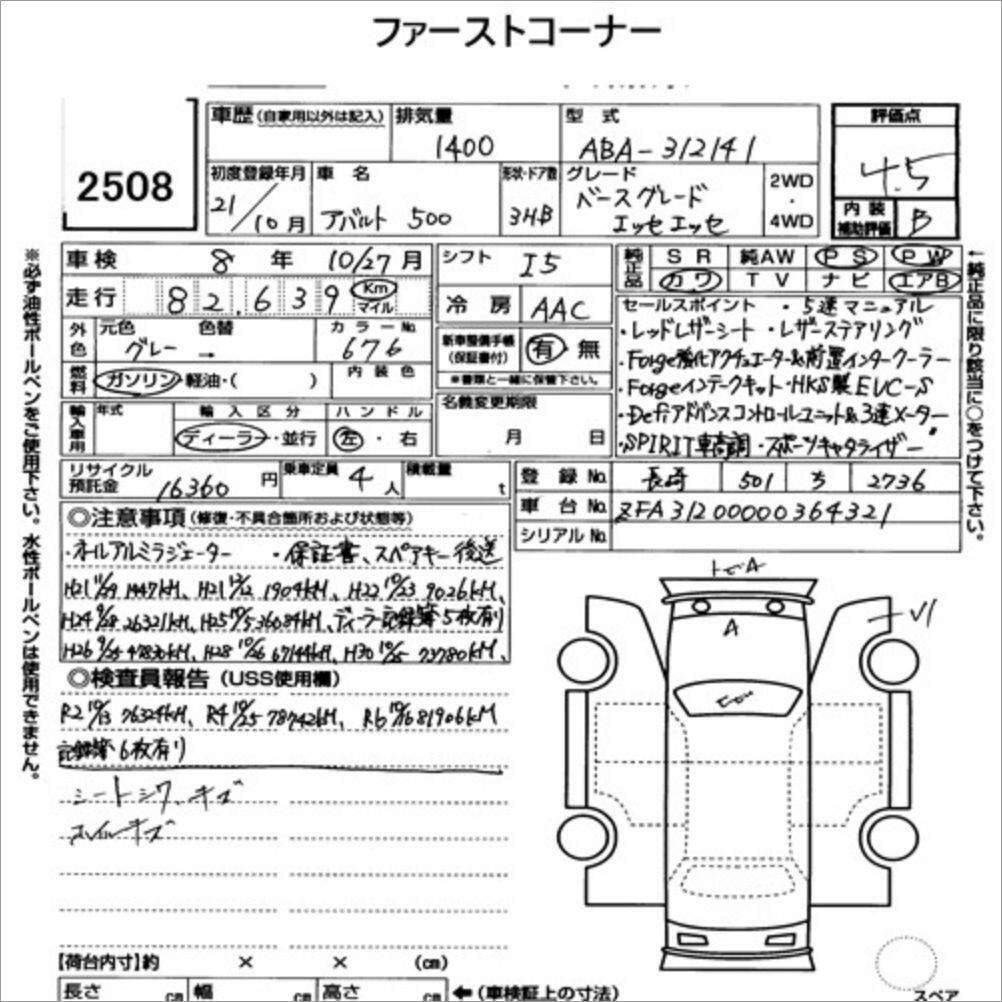 ファーストコーナー
2508
車歴(自家用以外は記入)
排気量
1400
型式
ABA-312141
評価点
4.5
内装
補助評価
B
初度登録年月
21/10月
車名
アバルト 500
形状・ドア数
3HB
グレード
ベースグレード
エッセエッセ
2WD
・
4WD
車検 8年 10/27月
シフト I5
純正品
SR 純AW PS PW
カワ TV ナビ エアB
走行 82,639 Km
マイル
冷房 AAC
外色
元色 色替
グレー →
カラーNo.
676
新車整備手帳
(保証書付)
有・無
※書類と一緒に保管下さい。
燃料
ガソリン・軽油・( )
内装色
輸入車用
年式
輸入区分
ディーラー・並行
ハンドル
左・右
名義変更期限
月 日
セールスポイント ・5速マニュアル
・レッドレザーシート ・レザーステアリング
・Forge強化アクチュエーター&前置インタークーラー
・Forgeインテークキット・HKS製EVC-S
・Defiアドバンスコントロールユニット&3連メーター
・SPIRIT車高調・スポーツキャタライザー
リサイクル
預託金
16360円
乗車定員
4人
積載量
t
登録No. 長崎 501 ち 2736
車台No. ZFA31200000364321
シリアルNo.
◎注意事項(修復・不具合箇所および状態等)
・オールアルミラジエーター ・保証書、スペアキー後送
H21 11/29 1447KM、H21 12/12 1904KM、H22 10/23 9026KM、
H24 9/28 26321KM、H25 10/5 36084KM、ディーラー記録簿5枚有り
H26 9/25 47830KM、H28 10/26 67144KM、H30 10/25 73780KM、
◎検査員報告(USS使用欄)
R2 10/13 76324KM、R4 10/25 78742KM、R6 10/16 81906KM
記録簿6枚有り
シートシワ、キズ
ホイルキズ
トビA
A
V1
【荷台内寸】約 × × (cm)
長さ cm 幅 cm 高さ cm ←(車検証上の寸法)
スペア
※必ず油性ボールペンをご使用下さい。水性ボールペンは使用できません。
←純正品に限り該当に○をつけて下さい。